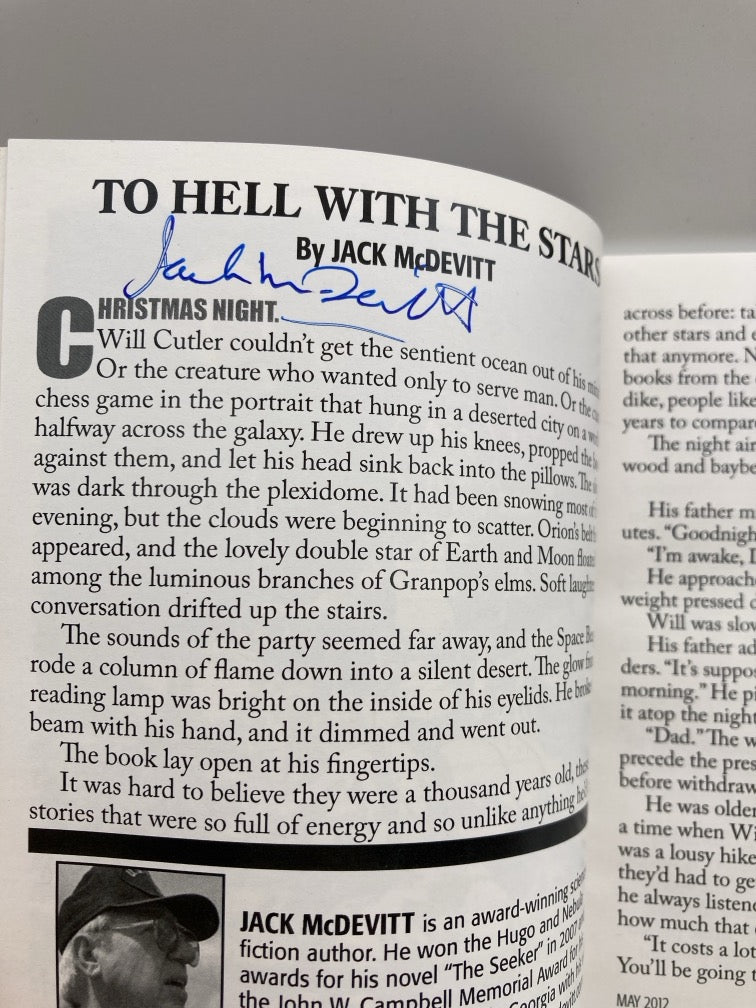 TO HELL WITH THE STARS
By JACK McDEVITT
Jack McDevitt
CHRISTMAS NIGHT.
Will Cutler couldn't get the sentient ocean out of his mind.
Or the creature who wanted only to serve man. Or the
chess game in the portrait that hung in a deserted city on a
halfway across the galaxy. He drew up his knees, propped the
against them, and let his head sink back into the pillows. The
was dark through the plexidome. It had been snowing most of
evening, but the clouds were beginning to scatter. Orion's belt
appeared, and the lovely double star of Earth and Moon
among the luminous branches of Granpop's elms. Soft
conversation drifted up the stairs.
The sounds of the party seemed far away, and the Space
rode a column of flame down into a silent desert. The glow
reading lamp was bright on the inside of his eyelids. He
beam with his hand, and it dimmed and went out.
The book lay open at his fingertips.
It was hard to believe they were a thousand years old,
stories that were so full of energy and so unlike anything
JACK McDEVITT is an award-winning
fiction author. He won the Hugo and
awards for his novel "The Seeker" in 2007
the John W. Campbell Memorial Award for
Georgia with
across before:
other stars and
that anymore.
books from the
dike, people like
years to compare
The night air
wood and
His father
utes. "Goodnight
"I'm awake,
He
weight pressed
Will was
His father
ders. "It's
morning." He
it atop the
"Dad." The
precede the
before
He was older
a time when
was a lousy
they'd had to
he always
how much that
"It costs a lot
You'll be going
MAY 2012